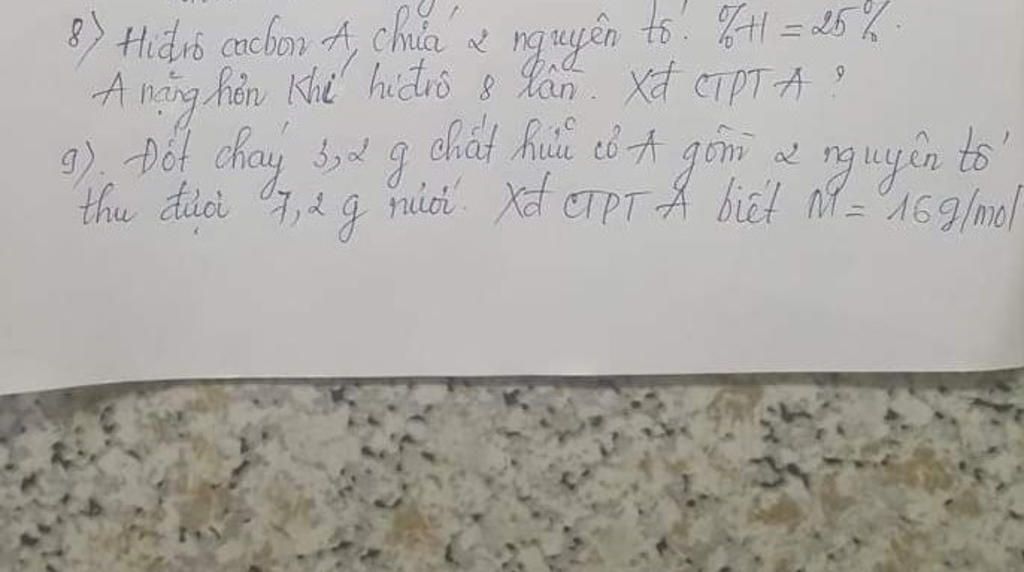 8) Hiđrô cacbon A, chứa 2 nguyên tố. %H = 25%.
A nặng hơn khí hiđrô 8 lần. Xđ CTPT A?
9). Đốt cháy 3,2 g chất hữu cơ A gồm 2 nguyên tố
thu được 7,2 g nước. Xđ CTPT A biết M = 16g/mol